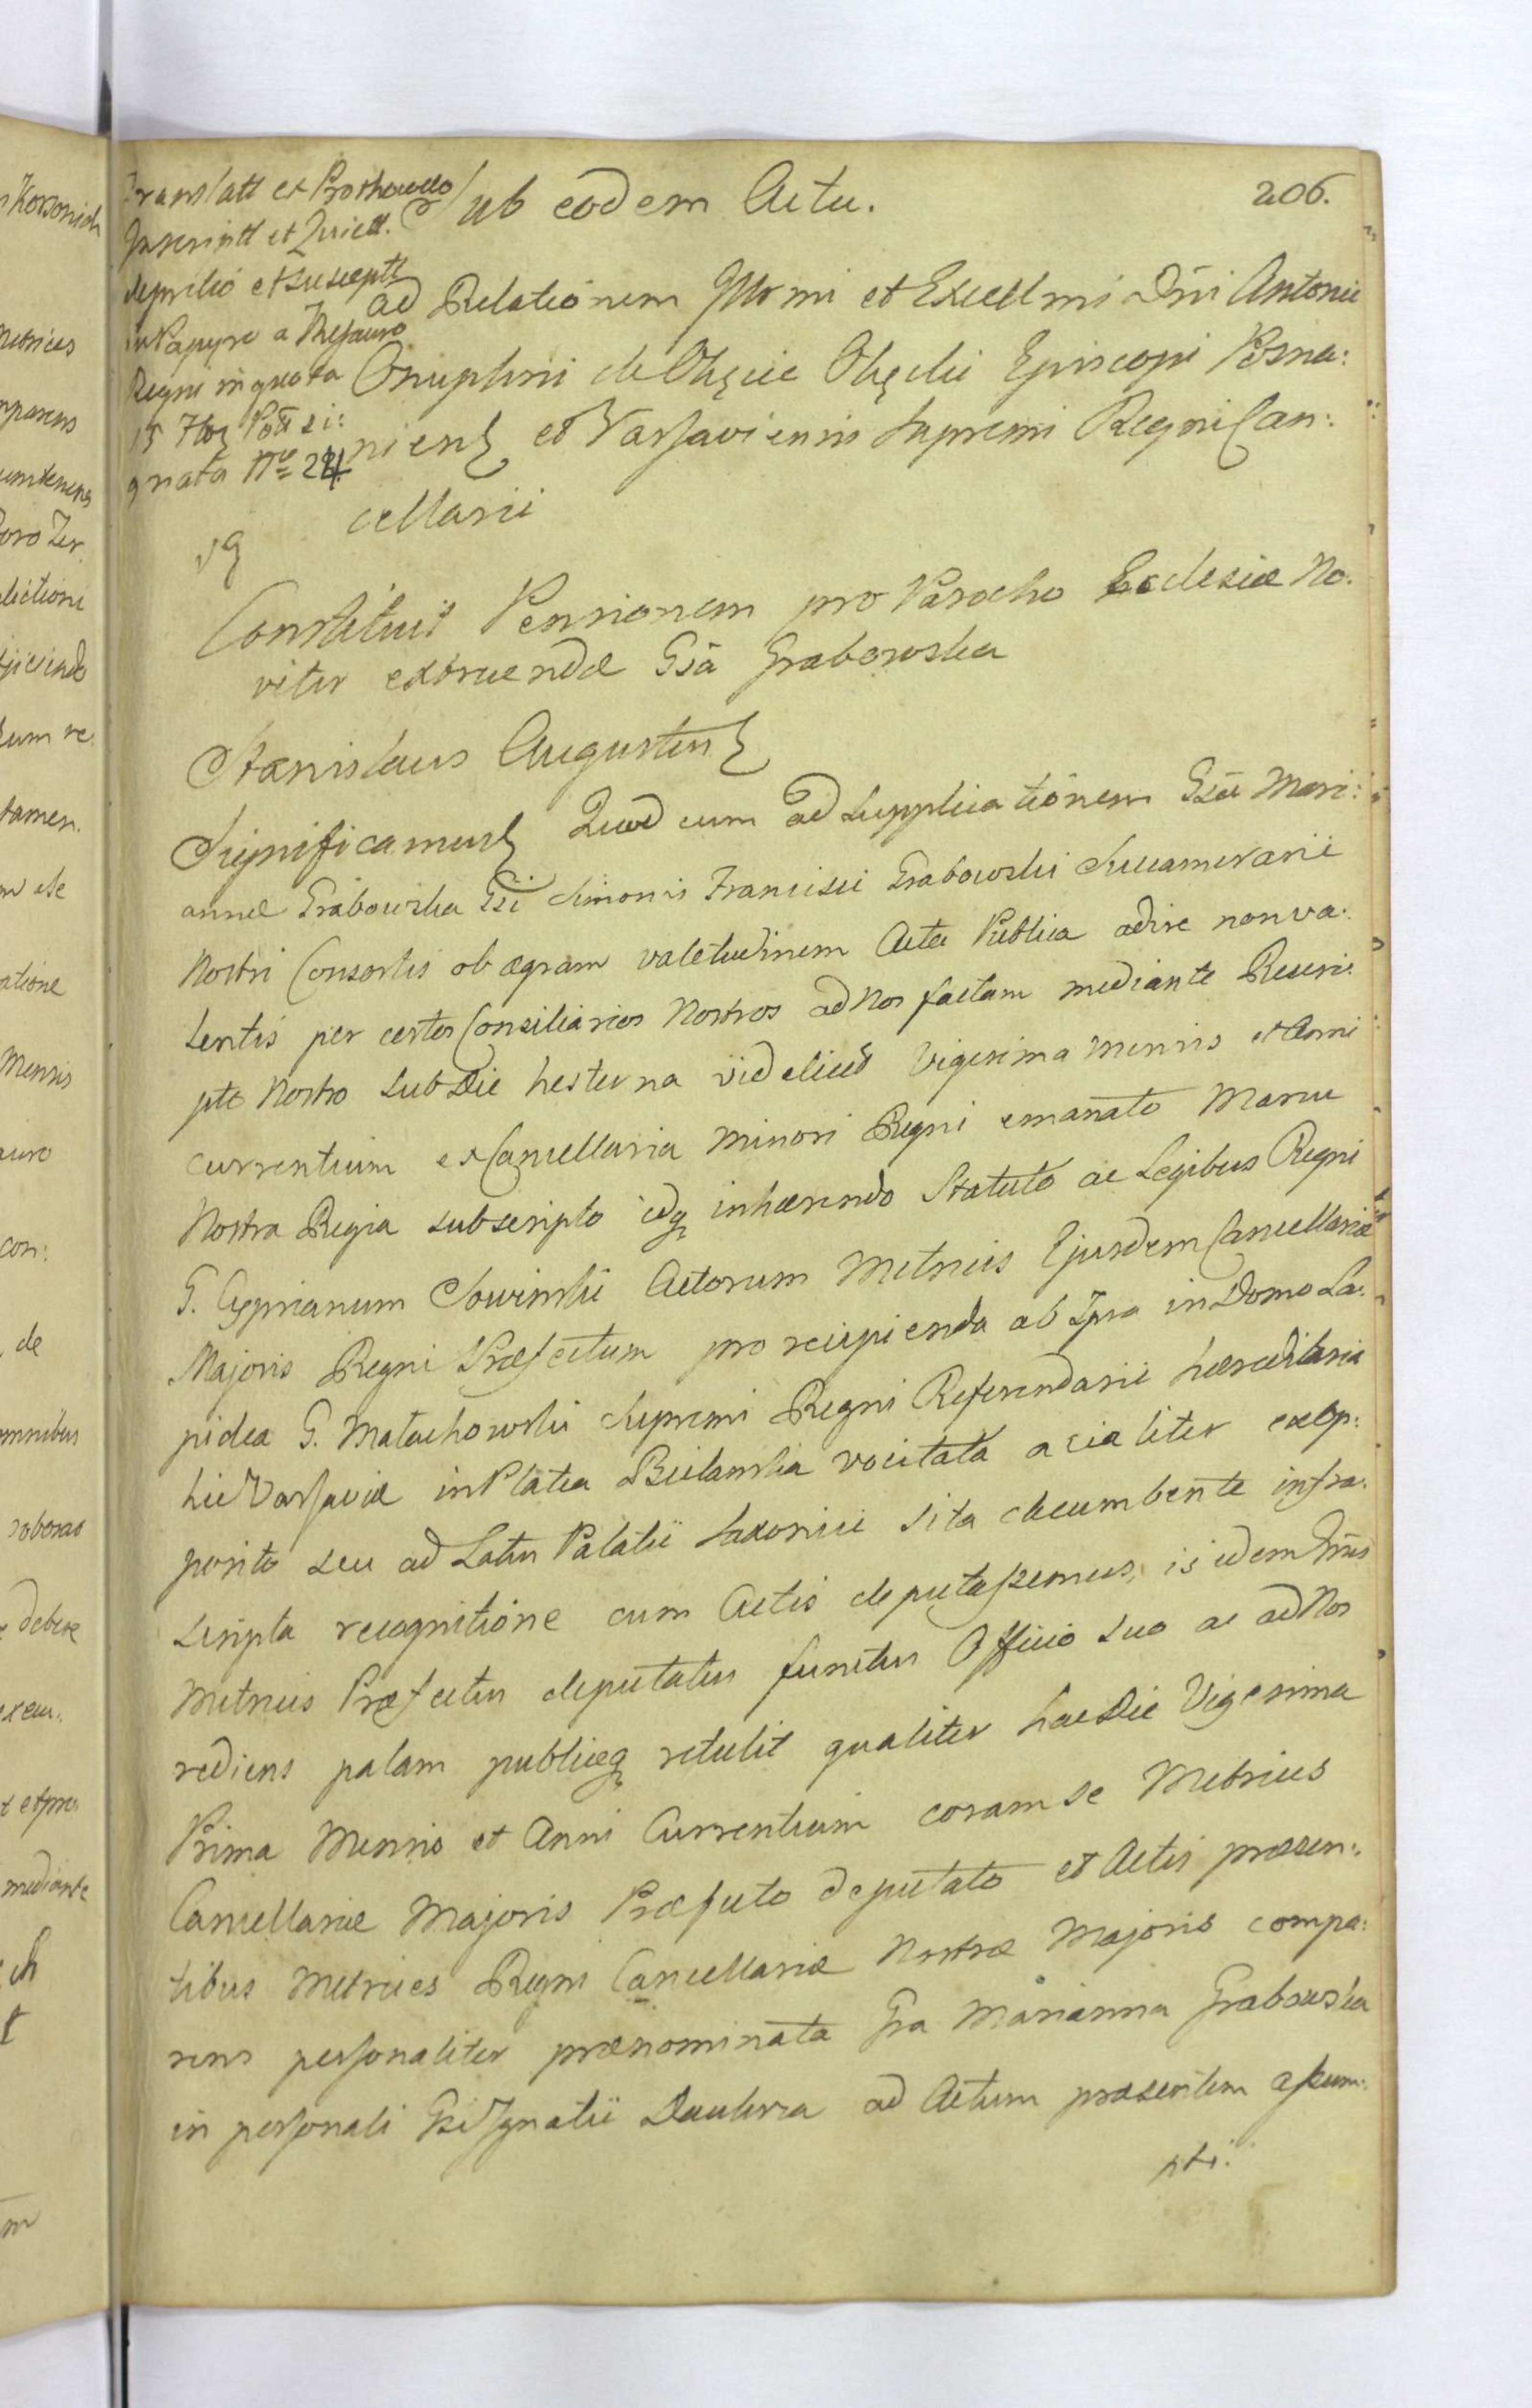 206.
Sub eodem Actu.
Translatt ex Prothocollo
Inscriptt et Quiett.
et susceptt
in Papyro a Thesauro
Regni in quota
15 Flor Poll si:
gnata Nro 24
ad Relationem Illr̃mi et Excellmi Dñi Antonii
Onuphrii de Okęcie Okęcki Episcopi Posna:
niens et Varsaviensis Supremi Regni Can:
cellarii
Constituit Pensionem pro Parocho Ecclesiæ No:
viter extruendæ Gsa Grabowska
Stanislaus Augustus
Significamus Quod cum ad Supplicationem Gsæ Mari:
annæ Grabowska Gsi Simonis Francisci Grabowski Succamerarii
Nostri Consortis ob ægram valetudinem Acta Publica adire non va:
lentis per certos Consiliarios Nostros ad Nos factam mediante Rescri:
pto Nostro sub Die hesterna videlicet Vigesima Mensis et Anni
currentium ex Cancellaria Minori Regni emanato Manu
Nostra Regia subscripto idq inhærendo Statuto ac Legibus Regni
G. Cyprianum Sowinski Actorum Metrices Ejusdem Cancellariæ
Majoris Regni Præfectum pro recipienda ab Ipsa in Domo La:
pidea G. Małachowski Supremi Regni Referendarii hæreditaria
hic Varsaviæ in Platea Bielanska vocitata acialiter ex op:
posito seu ad Latus Palatii Saxonici sita decumbente infra:
scripta recognitione cum Actis deputassemus, is idem Gñs
Metrices Præfectus deputatus functus Officio suo ac ad Nos
rediens palam publiceq retulit qualiter hac Die Vigesima
Prima Mensis et Anni Currentium coram se Metrices
Cancellariæ Majoris Præfecto deputato et Actis præsen:
tibus Metrices Regni Cancellariæ Nostræ Majoris compa:
rens personaliter prænominata Gsa Marianna Grabowska
in personali Gsi Ignatii ad Actum præsentem assum:
pti